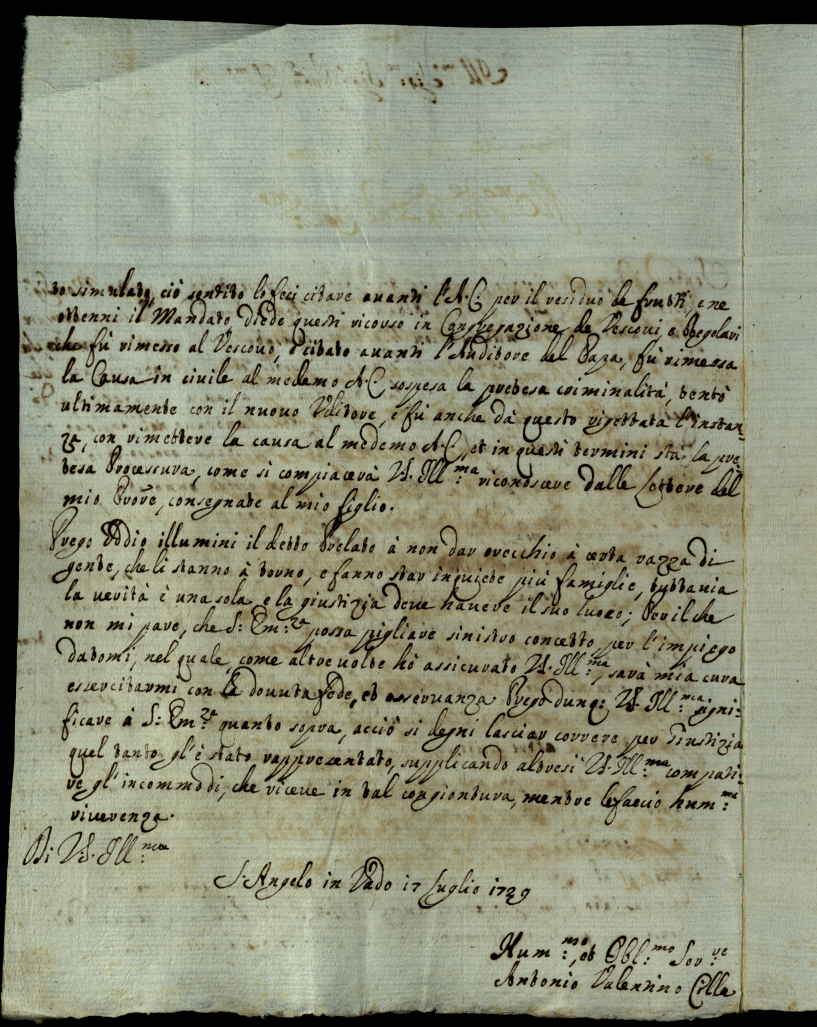 to simulato, ciò sentito lo feci citare auanti l'A.C. per il residuo de frutti e ne
ottenni il Mandato diede questi ricorso in Congregazione de Vescoui, e Regolari
che fù rimesso al Vescouo, è citato auanti l'Auditore del Papa, fù rimessa
la Causa in ciuile al medemo A.C. sospesa la pretesa criminalità, tentò
ultimamente con il nuouo Uditore, e fù anche dà questo rigettata l'instan:
za, con rimettere la causa al medemo A.C., et in questi termini stà la pre:
tesa Processura, come si compiacerà V.S. Ill:ma riconoscere dalle Lettere del
mio Proc:e, consegnate al mio figlio.
Prego Iddio illumini il detto Prelato à non dar orecchio à certa razza di
gente, che li stanno à torno, e fanno star inquiete più famiglie, tuttauia
la uerità è una sola, e la giustizia deue hauere il suo luogo; Per il che
non mi pare, che S: Em:za possa pigliare sinistro concetto per l'impiego
datomi, nel quale, come altre uolte hò assicurato V.S. Ill:ma, sarà mia cura
essercitarmi con la douuta fede, et osseruanza Prego dunq: V.S. Ill:ma signi:
ficare à S: Em:za quanto sopra, acciò si degni lasciar correre per Giustizia
quel tanto gl'è stato rappresentato, supplicando altresì V.S. Ill:ma compati:
re gl'incommodi, che riceue in tal congiontura, mentre le faccio hum:ma
riuerenza.
Di V.S. Ill:ma
S. Angelo in Vado 17 Luglio 1729
Hum:mo, et Obl:mo Ser:re
Antonio Valentino Cilla